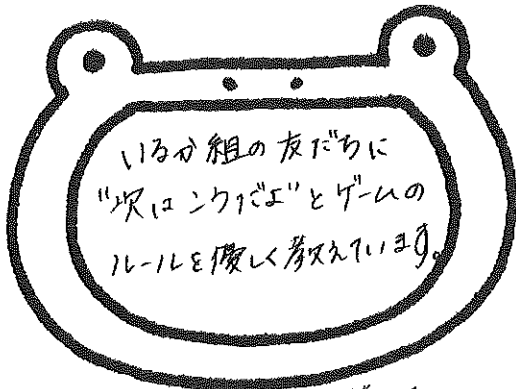 いるか組の友だちに
"次はこうだよ"とゲームの
ルールを優しく教えています。